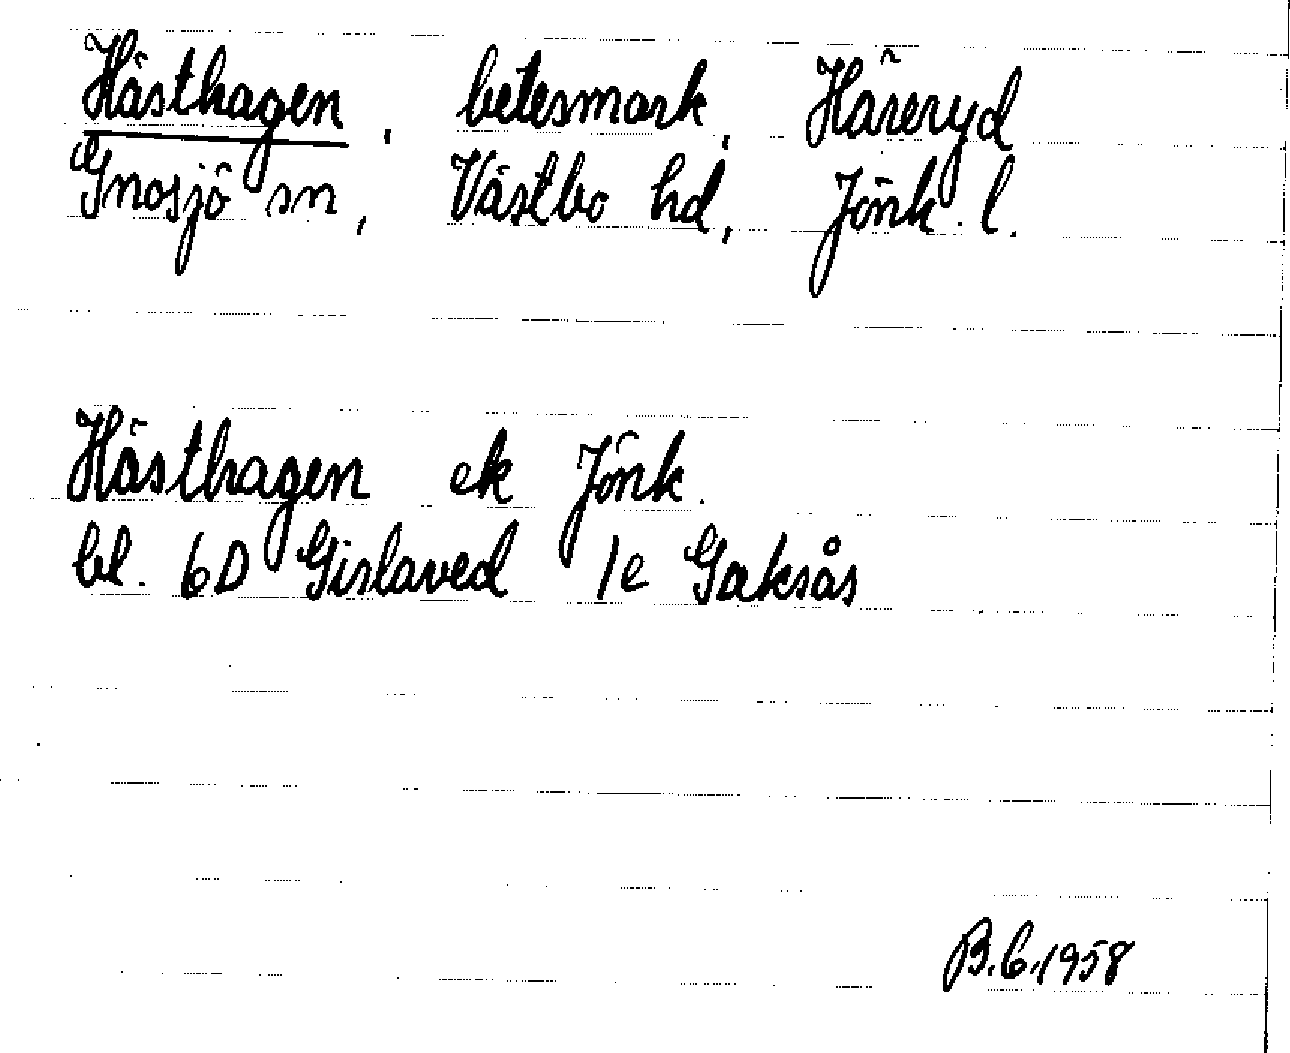 Hästhagen, betesmark, Häreryd
Gnosjö sn, Västbo hd, Jönk. l.
Hästhagen ek Jönk.
bl. 6D Gislaved 1e Gaksås
B.C.1958